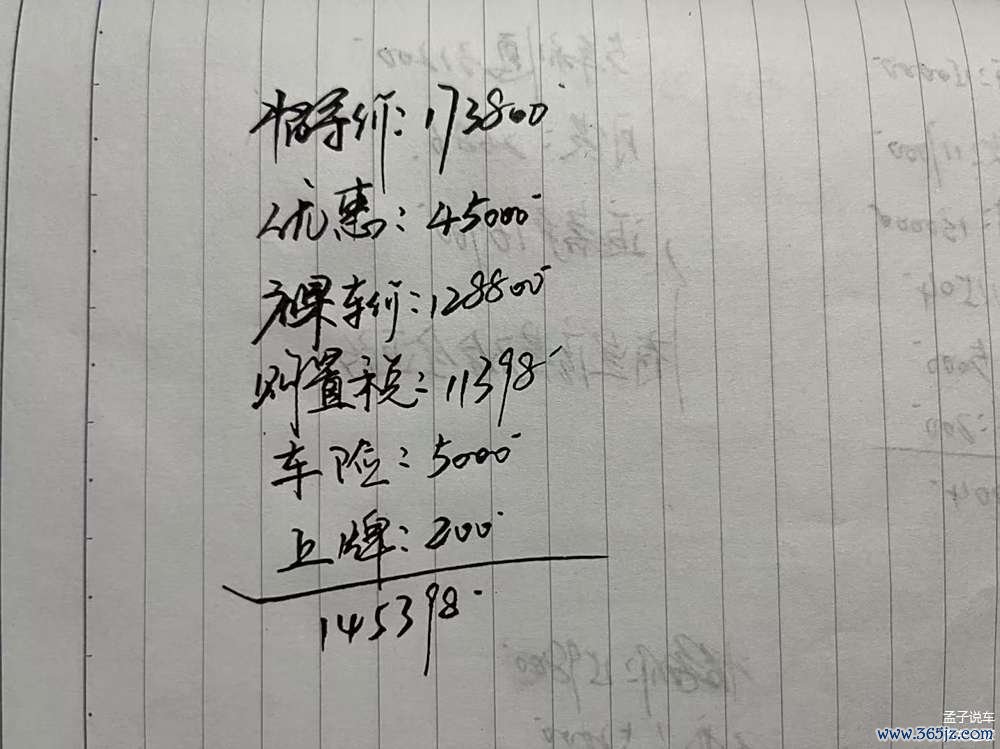 指导价：173800
优惠：45000
裸车价：128800
购置税：11398
车险：5000
上牌：200
145398
孟子说车
www.365jz.com